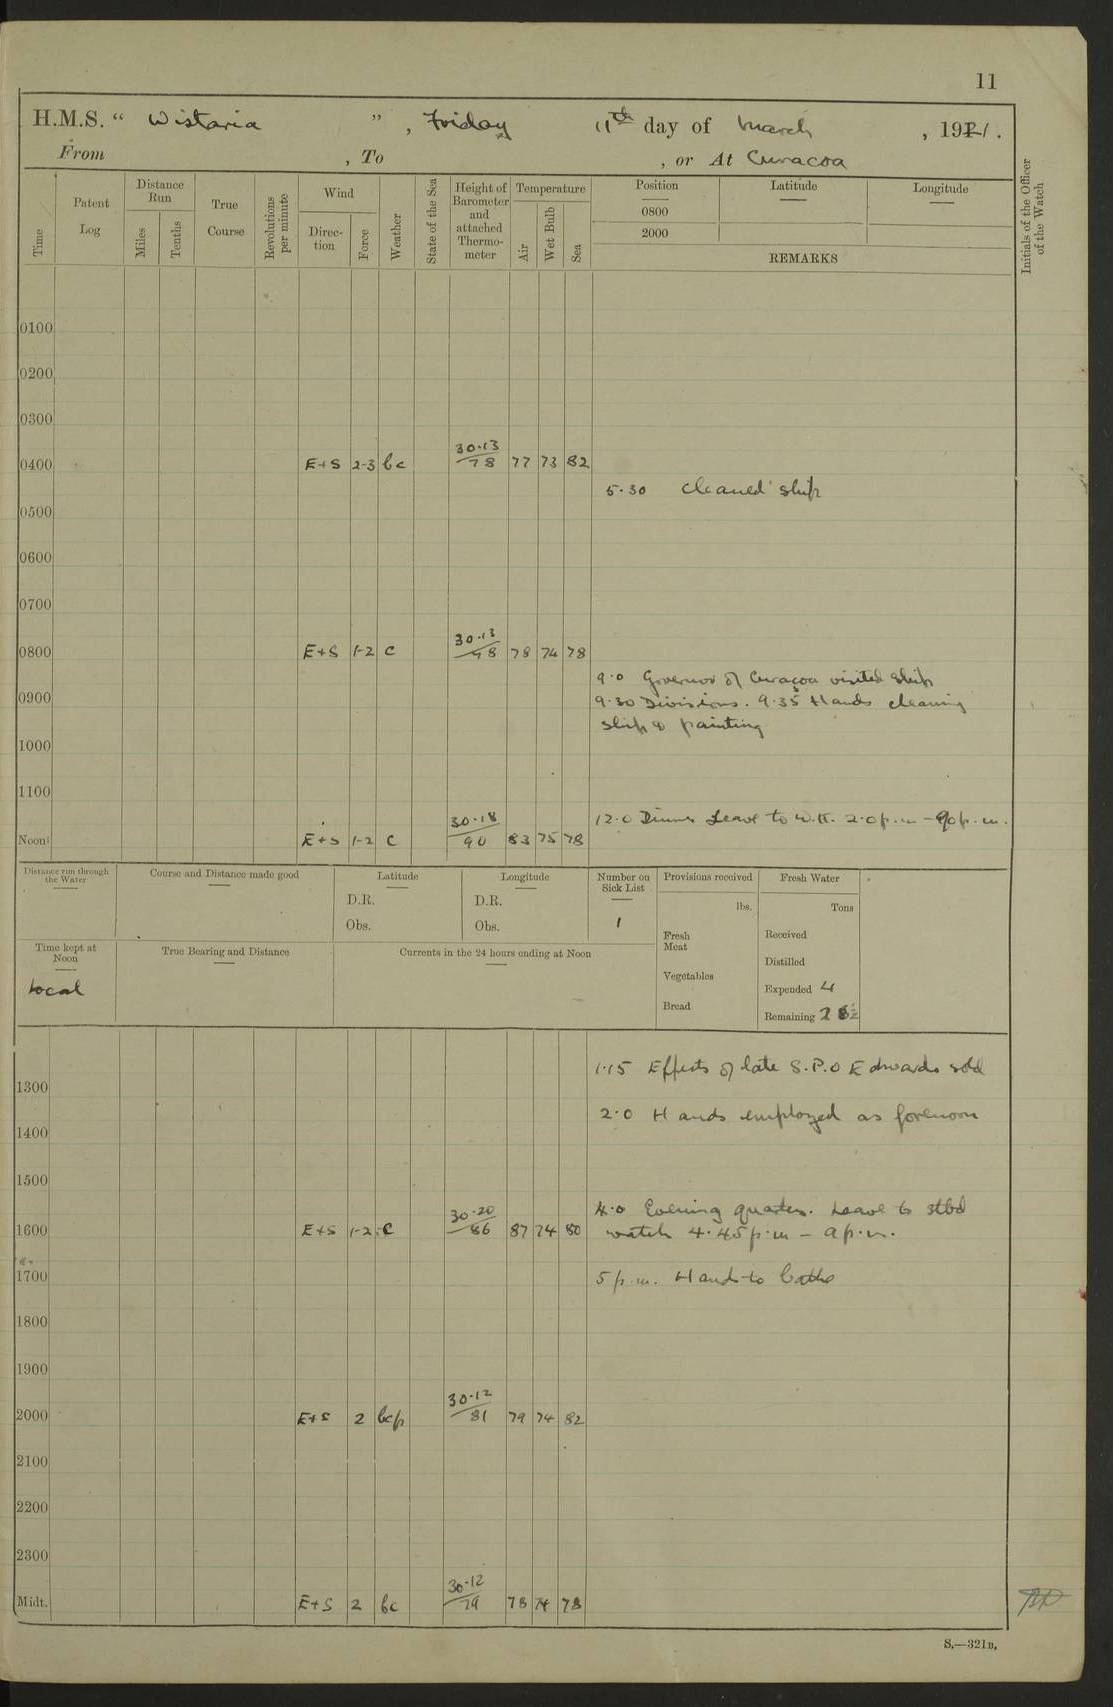 11
H.M.S. “ Wistaria ” , Friday 11th day of March , 1921.
From , To , or At Curacoa
Time
Patent Log
Distance Run
Miles
Tenths
True Course
Revolutions per minute
Wind
Direc-tion
Force
Weather
State of the Sea
Height of Barometer and attached Thermo-meter
Temperature
Air
Wet Bulb
Sea
Position
0800
2000
Latitude
Longitude
REMARKS
Initials of the Officer of the Watch
0100
0200
0300
0400 E+S 2-3 bc 30.13/78 77 73 82
5.30 cleaned ship
0500
0600
0700
0800 E+S 1-2 c 30.13/98 78 74 78
9.0 Governor of Curacoa visited ship
0900 9.30 Divisions. 9.35 Hands cleaning
ship & painting
1000
1100
12.0 Dinner Leave to W.K. 2.0 p.m – 9.0 p.m.
Noon E+S 1-2 c 30.18/90 83 75 78
Distance run through the Water
Course and Distance made good
Latitude
D.R.
Obs.
Longitude
D.R.
Obs.
Number on Sick List
1
Provisions received
lbs.
Fresh Meat
Vegetables
Bread
Fresh Water
Tons
Received
Distilled
Expended 4
Remaining
Time kept at Noon
Local
True Bearing and Distance
Currents in the 24 hours ending at Noon
1.15 Effects of late S.P.O Edwards sold
1300
2.0 Hands employed as forenoon
1400
1500
4.0 Evening quarters. Leave to stbd
1600 E+S 1-2 c 30.20/86 87 74 80
watch 4.45 p.m – 9 p.m.
1700 5 p.m. Hands to bathe
1800
1900
2000 E+S 2 bcp 30.12/81 79 74 82
2100
2200
2300
Midt. E+S 2 bc 30.12/79 78 74 78
S.—321B.